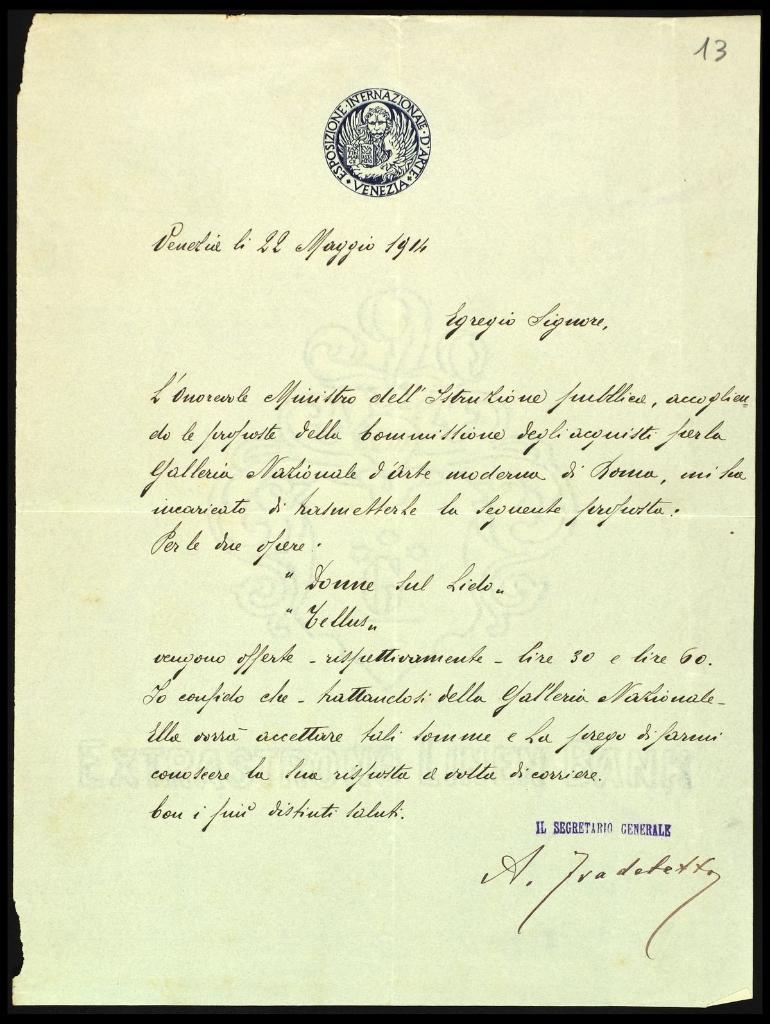 13
ESPOSIZIONE·INTERNAZIONALE·D'ARTE·VENEZIA·
Venezia li 22 Maggio 1914
Egregio Signore,
L'Onorevole Ministro dell'Istruzione pubblica, accoglien=
do le proposte della Commissione degli acquisti per la
Galleria Nazionale d'Arte moderna di Roma, mi ha
incaricato di trasmetterLe la seguente proposta:
Per le due opere:
" Donne sul Lido„
" Tellus„
vengono offerte - rispettivamente - lire 30 e lire 60.
Io confido che - trattandosi della Galleria Nazionale -
Ella vorrà accettare tali somme e La prego di farmi
conoscere la Sua risposta a volta di corriere.
Con i più distinti saluti.
IL SEGRETARIO GENERALE
A. Fradeletto